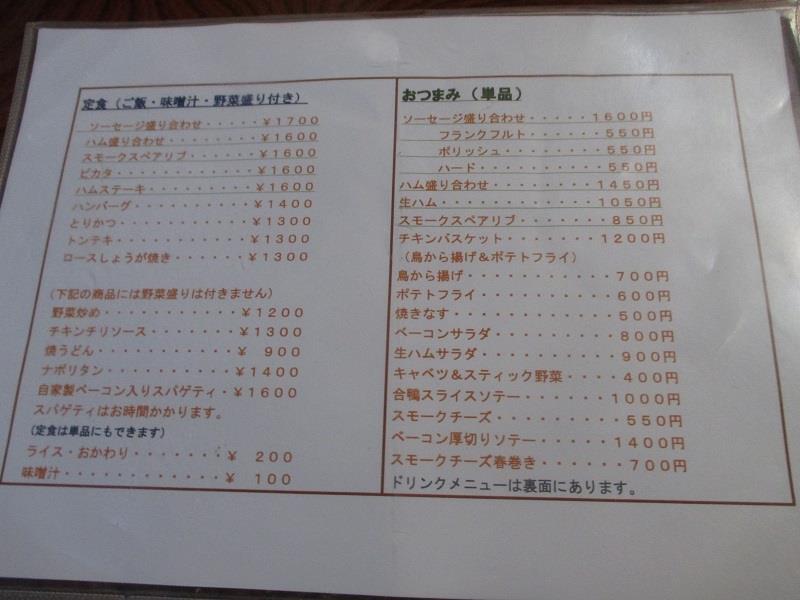 定食（ご飯・味噌汁・野菜盛り付き）
ソーセージ盛り合わせ・・・・・￥１７００
ハム盛り合わせ・・・・・・・・￥１６００
スモークスペアリブ・・・・・・￥１６００
ピカタ・・・・・・・・・・・・￥１６００
ハムステーキ・・・・・・・・・￥１６００
ハンバーグ・・・・・・・・・・￥１４００
とりかつ・・・・・・・・・・・￥１３００
トンテキ・・・・・・・・・・・￥１３００
ロースしょうが焼き・・・・・・￥１３００
（下記の商品には野菜盛りは付きません）
野菜炒め・・・・・・・・・・・￥１２００
チキンチリソース・・・・・・・￥１３００
焼うどん・・・・・・・・・・・￥　９００
ナポリタン・・・・・・・・・・￥１４００
自家製ベーコン入りスパゲティ・￥１６００
スパゲティはお時間かかります。
（定食は単品にもできます）
ライス・おかわり・・・・・・・￥　２００
味噌汁・・・・・・・・・・・・￥　１００
おつまみ（単品）
ソーセージ盛り合わせ・・・・・１６００円
フランクフルト・・・・・５５０円
ポリッシュ・・・・・・・５５０円
ハード・・・・・・・・・５５０円
ハム盛り合わせ・・・・・・・・１４５０円
生ハム・・・・・・・・・・・・１０５０円
スモークスペアリブ・・・・・・・８５０円
チキンバスケット・・・・・・・１２００円
（鳥から揚げ＆ポテトフライ）
鳥から揚げ・・・・・・・・・・・７００円
ポテトフライ・・・・・・・・・・６００円
焼きなす・・・・・・・・・・・・５００円
ベーコンサラダ・・・・・・・・・８００円
生ハムサラダ・・・・・・・・・・９００円
キャベツ＆スティック野菜・・・・４００円
合鴨スライスソテー・・・・・・１０００円
スモークチーズ・・・・・・・・・５５０円
ベーコン厚切りソテー・・・・・１４００円
スモークチーズ春巻き・・・・・・７００円
ドリンクメニューは裏面にあります。